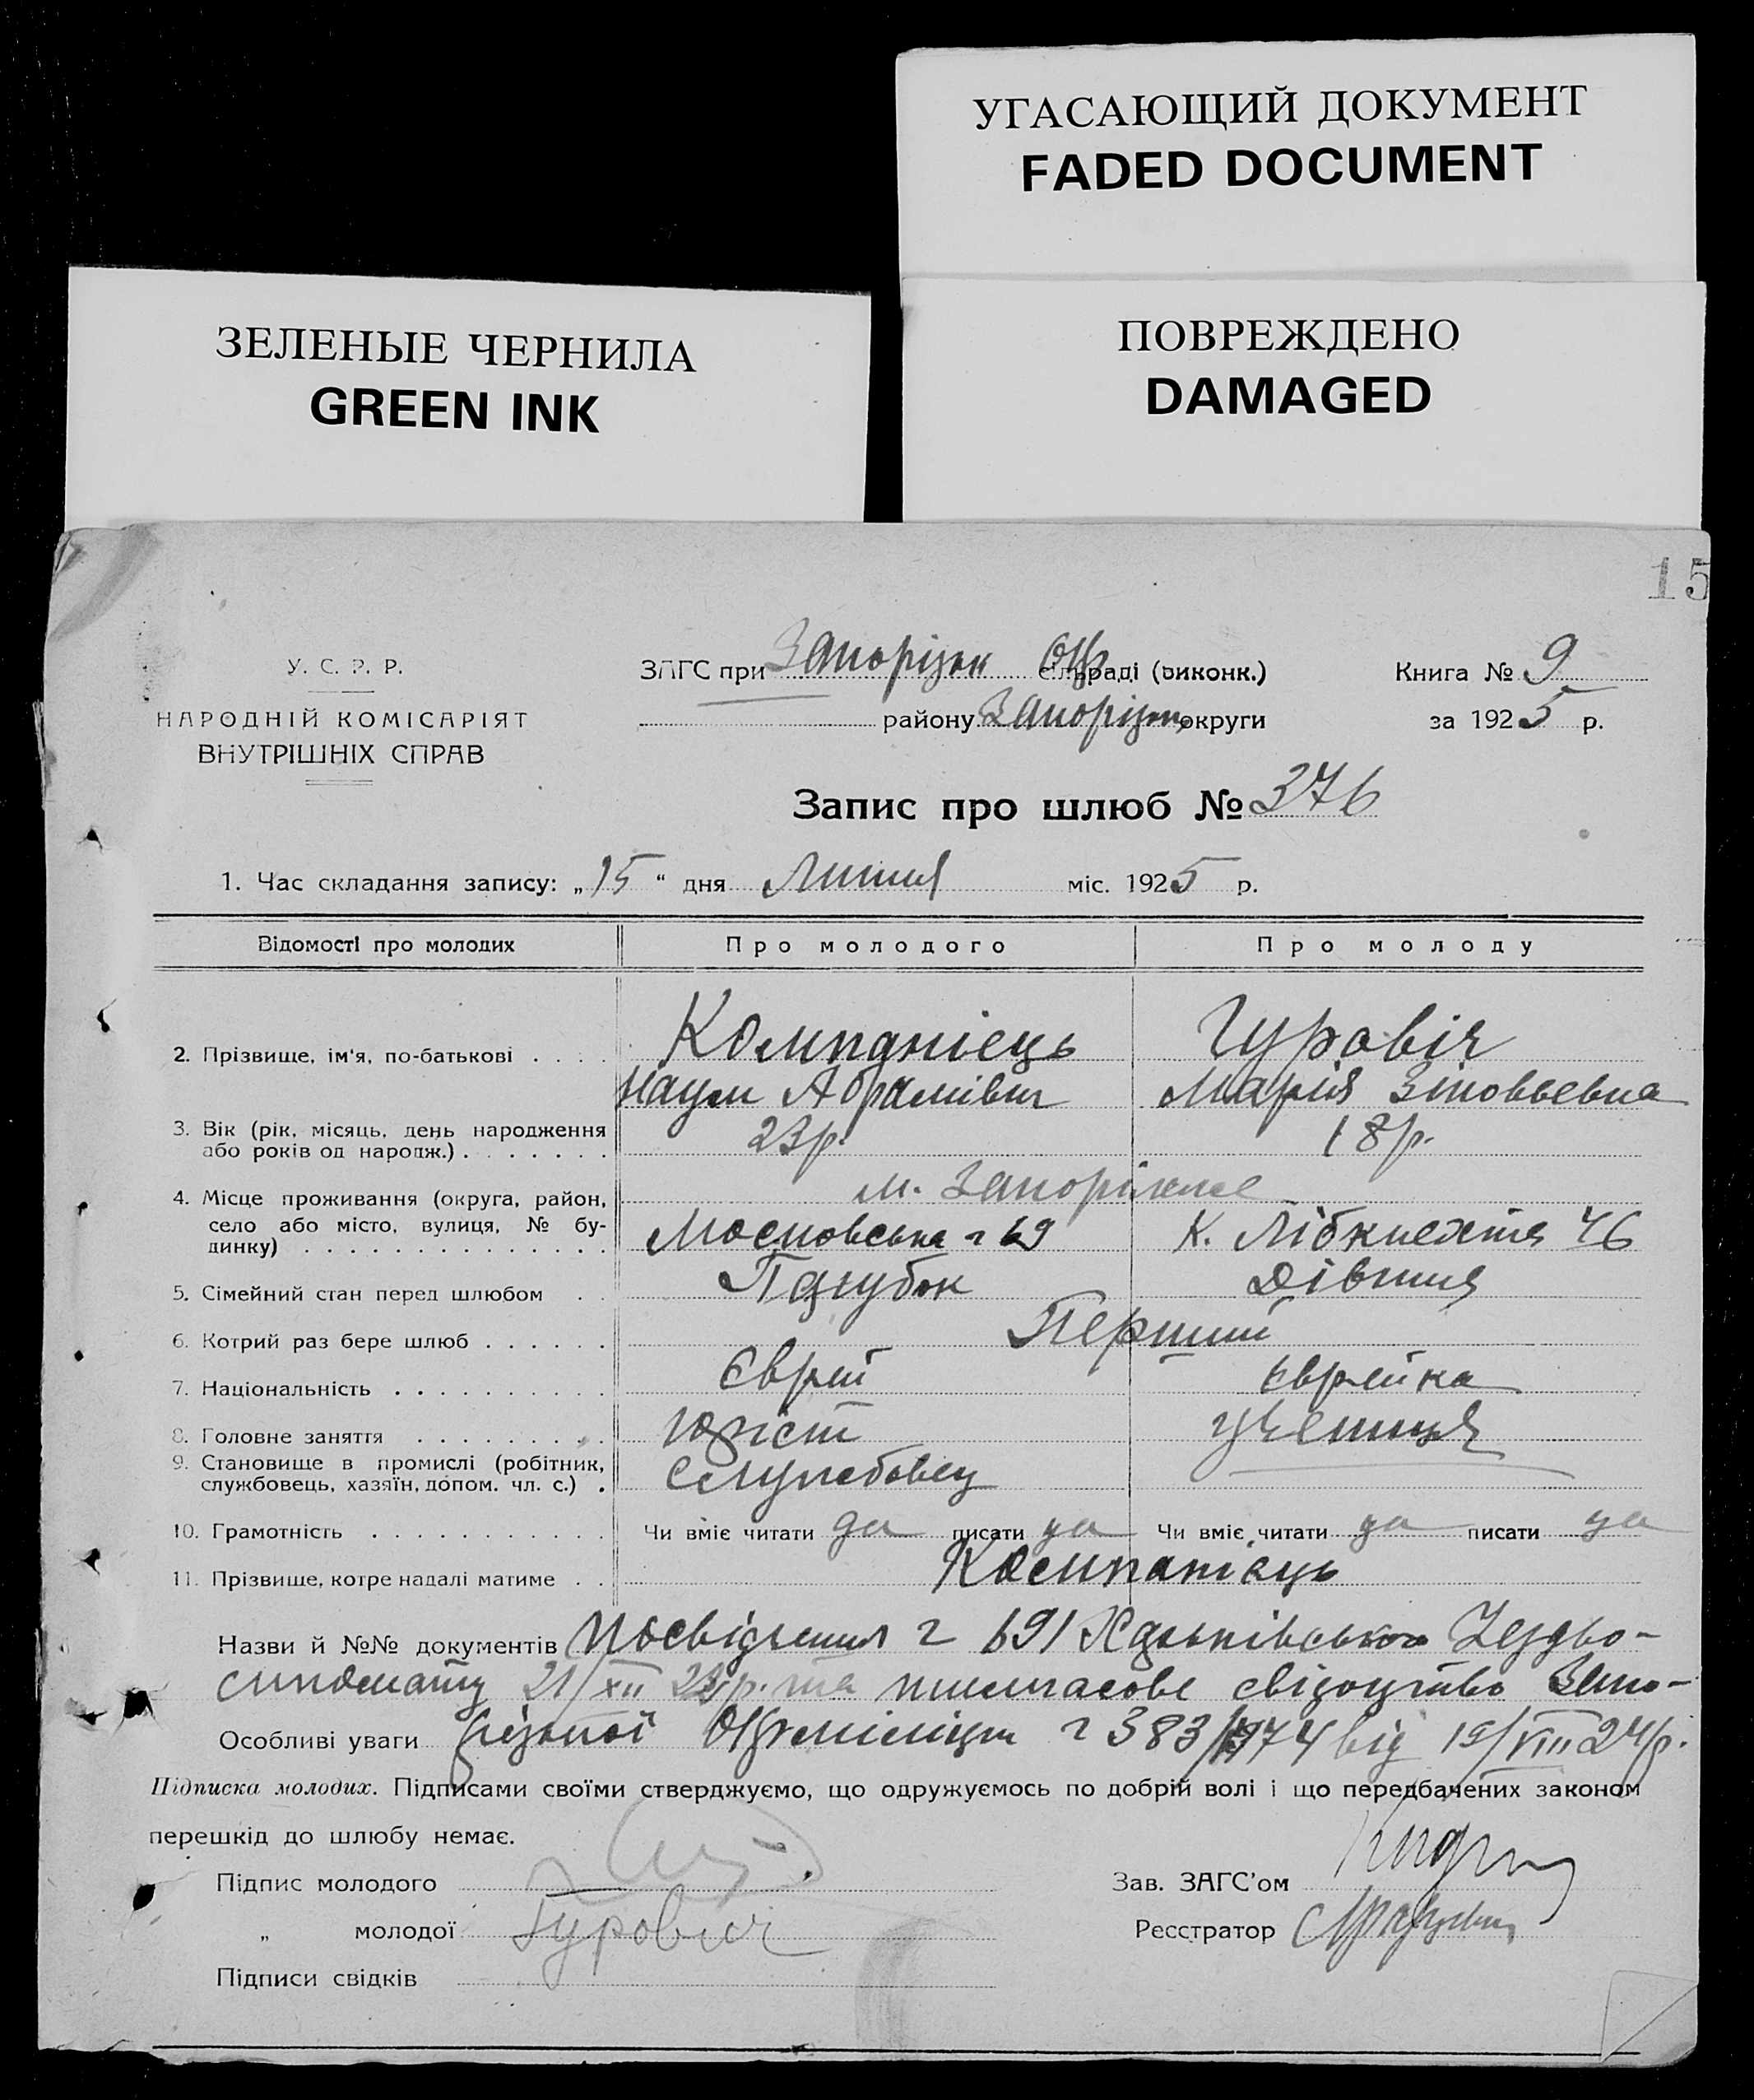 УГАСАЮЩИЙ ДОКУМЕНТ
FADED DOCUMENT
ЗЕЛЕНЫЕ ЧЕРНИЛА
GREEN INK
ПОВРЕЖДЕНО
DAMAGED
15
У. С. Р. Р.
НАРОДНІЙ КОМІСАРІЯТ
ВНУТРІШНІХ СПРАВ
ЗАГС при Запорізьк сільраді (виконк.)
району Запорізьк округи
Книга № 9
за 1925 р.
Запис про шлюб № 376
1. Час складання запису: „15“ дня Липня міс. 1925 р.
Відомості про молодих Про молодого Про молоду
2. Прізвище, ім'я, по-батькові . . . . Компанієць Гуровіч
Наум Абрамівич Марія Зіновьевна
3. Вік (рік, місяць, день народження 23 р. 18 р.
або років од народж.) . . . . . . .
4. Місце проживання (округа, район, м. Запоріжже
село або місто, вулиця, № бу- Московська 69 К. Лібкнехта 46
динку) . . . . . . . . . . . . . .
5. Сімейний стан перед шлюбом . . Парубок Дівчина
6. Котрий раз бере шлюб . . . . . . Перший
7. Національність . . . . . . . . . . Єврей Єврейка
8. Головне заняття . . . . . . . . . Юріст учениця
9. Становище в промислі (робітник, Службовец
службовець, хазяїн, допом. чл. с.) .
10. Грамотність . . . . . . . . . . . Чи вміє читати да писати да Чи вміє читати да писати да
11. Прізвище, котре надалі матиме . . Компанієць
Назви й №№ документів Посвідчення 691 Харьківського
21/XII 23 р. та тимчасове свідоцтво Запо-
Особливі уваги різької Окрміліціи 383/ від 19/VIII 24 р.
Підписка молодих. Підписами своїми стверджуємо, що одружуємось по добрій волі і що передбачених законом
перешкід до шлюбу немає.
Підпис молодого
„ молодої Гурович
Підписи свідків
Зав. ЗАГС'ом
Реєстратор